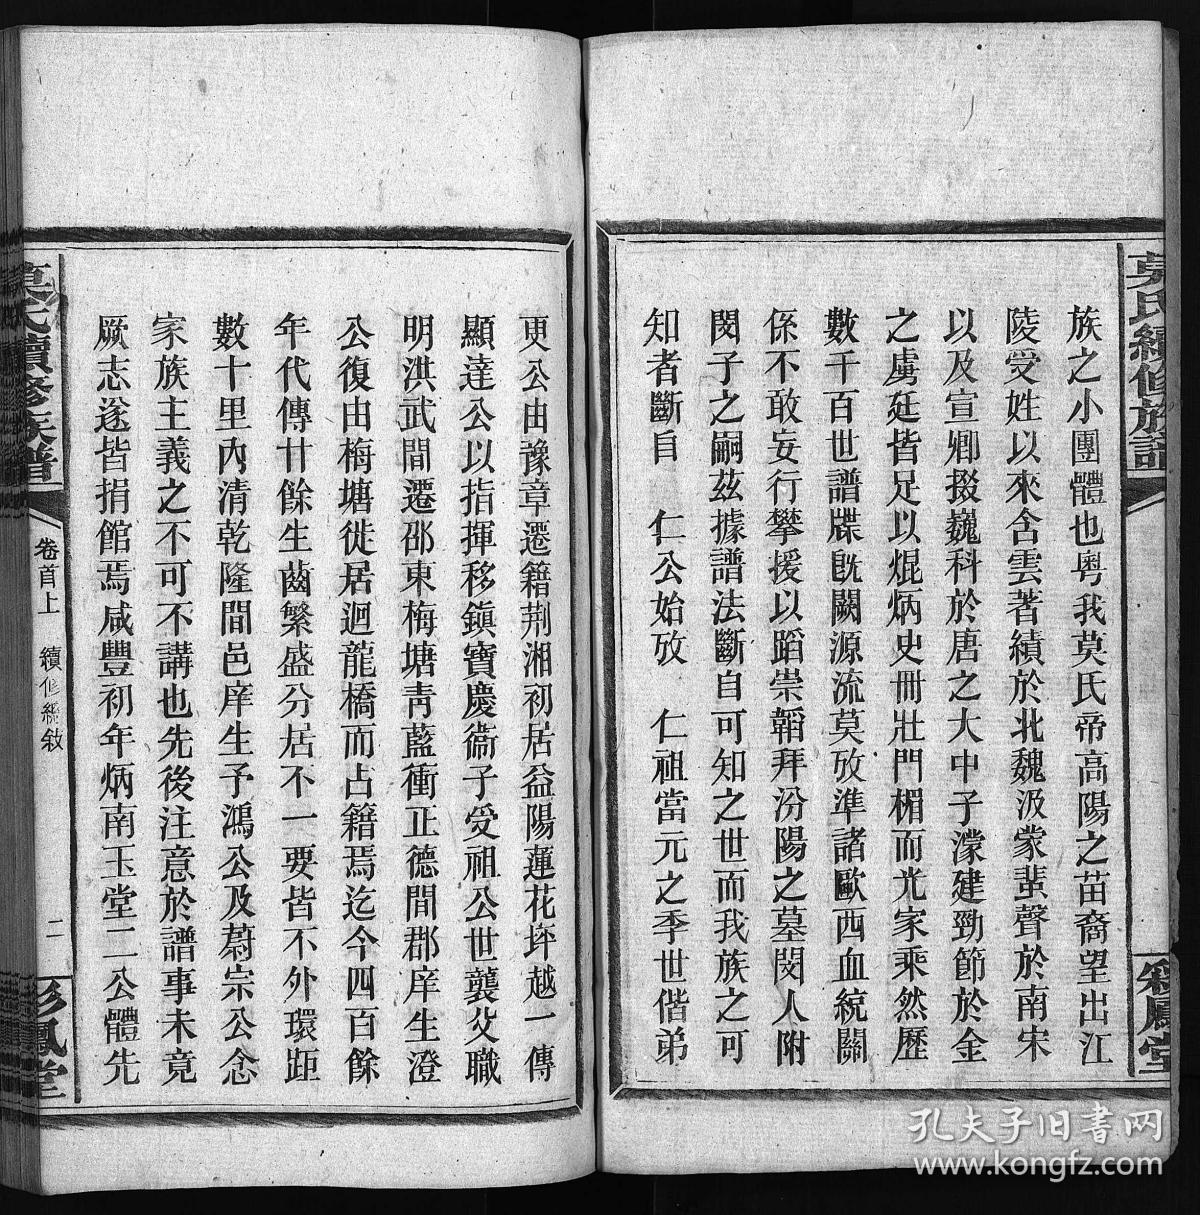 莫氏續修族譜
彩鳳堂
族之小團體也粵我莫氏帝高陽之苗裔望出江
陵受姓以來含雲著績於北魏汲蒙蜚聲於南宋
以及宣卿掇巍科於唐之大中子濛建勁節於金
之虜廷皆足以焜炳史冊壯門楣而光家乘然歷
數千百世譜牒旣闕源流莫攷準諸歐西血統關
係不敢妄行攀援以蹈崇韜拜汾陽之墓閔人附
閔子之嗣茲據譜法斷自可知之世而我族之可
知者斷自 仁公始攷 仁祖當元之季世偕弟
更公由豫章遷籍荆湘初居益陽蓮花坪越一傳
顯達公以指揮移鎮寶慶衞子受祖公世襲父職
明洪武間遷邵東梅塘靑藍衝正德間郡庠生澄
公復由梅塘徙居迴龍橋而占籍焉迄今四百餘
年代傳廿餘生齒繁盛分居不一要皆不外環距
數十里內清乾隆間邑庠生予鴻公及蔚宗公念
家族主義之不可不講也先後注意於譜事未竟
厥志遂皆捐館焉咸豐初年炳南玉堂二公體先
莫氏續修族譜
卷首上 續修總敘
二
彩鳳堂
孔夫子旧书网
www.kongfz.com